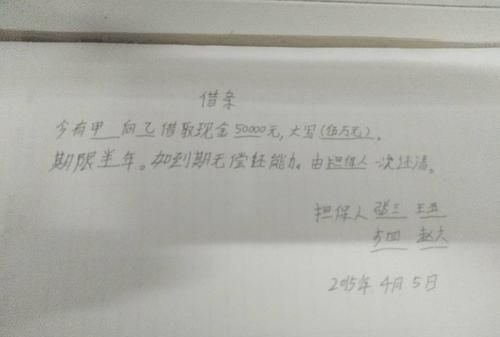 借条
今有甲 向乙借取现金50000元,大写(伍万元)。
期限半年。如到期无偿还能力。由担保人一次还清。
担保人 张三 王五
李四 赵六
2015年 4月 5日